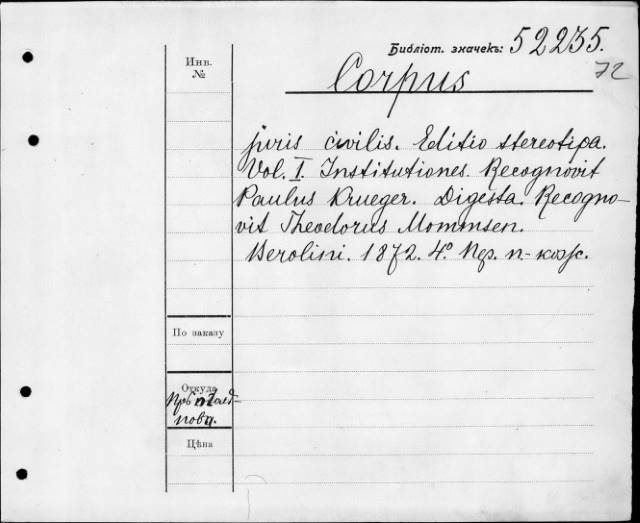 Библіот. значекъ: 52235.
72
Инв.
№
Corpus
juris civilis. Editio stereotipa.
Vol. I. Institutiones. Recognovit
Paulus Krueger. Digesta. Recogno-
vit Theodorus Mommsen.
Berolini. 1872. 4º Пер. п.-кож.
По заказу
Откуда
Цѣна